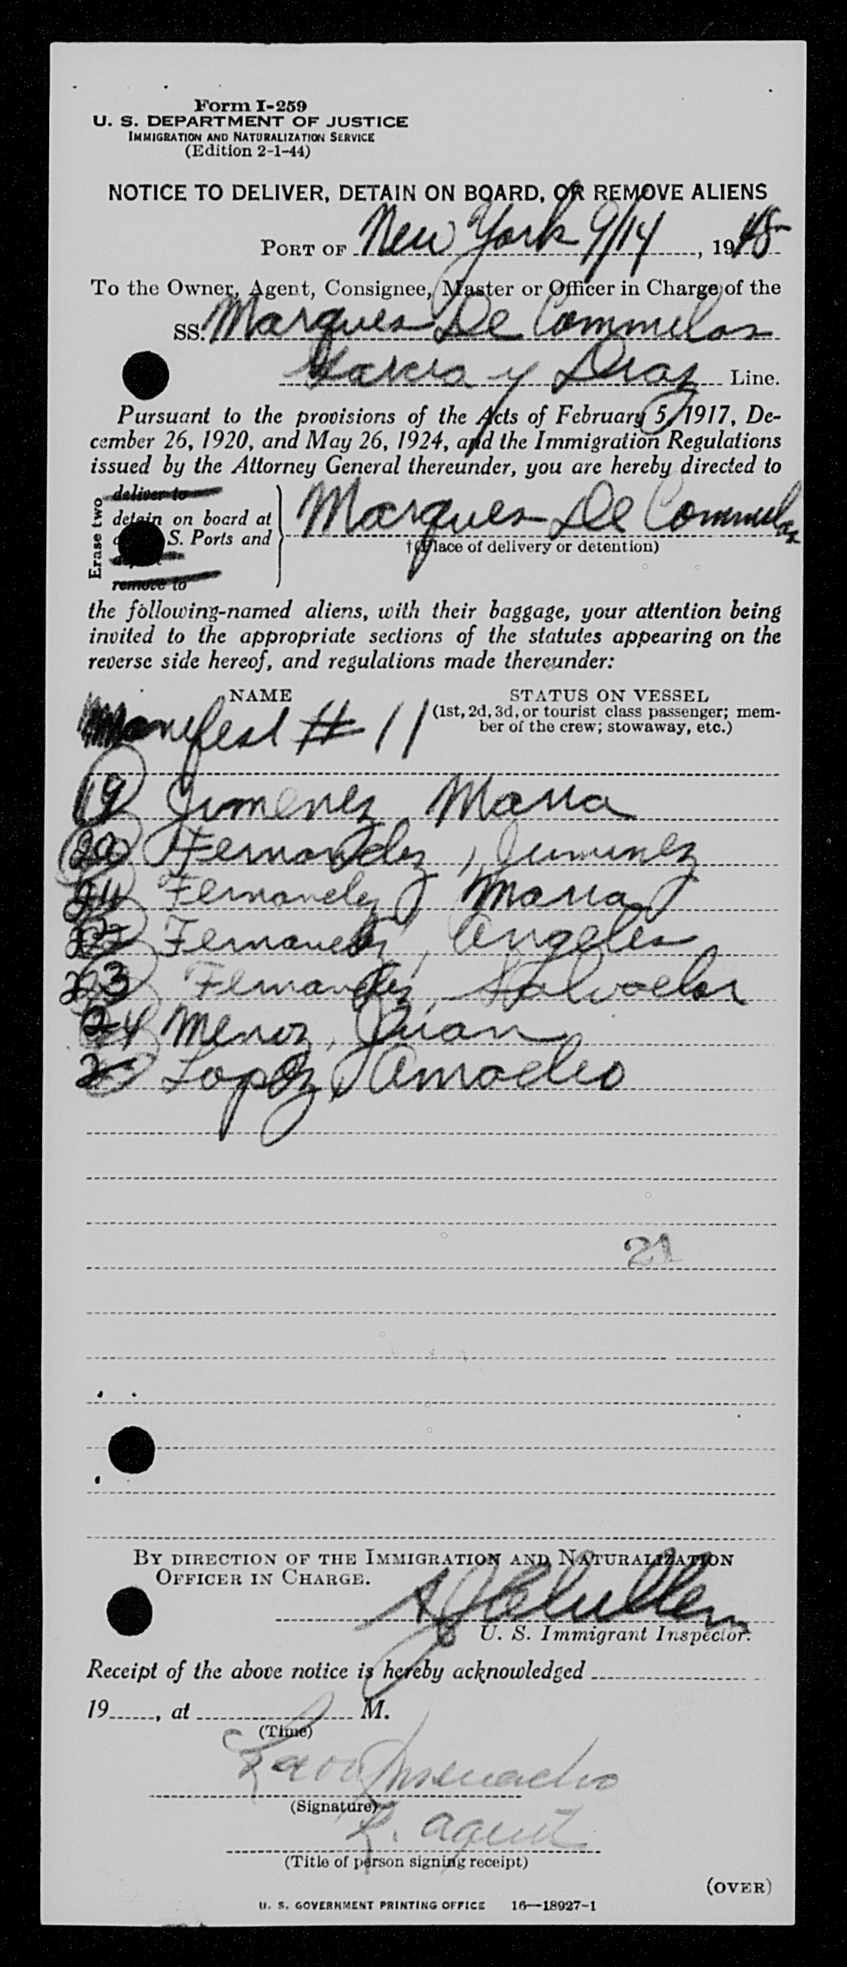 Form I-259
U. S. DEPARTMENT OF JUSTICE
IMMIGRATION AND NATURALIZATION SERVICE
(Edition 2-1-44)
NOTICE TO DELIVER, DETAIN ON BOARD, OR REMOVE ALIENS
PORT OF New York 9/14, 1945
To the Owner, Agent, Consignee, Master or Officer in Charge of the
SS. Marques De Commilas
Garcia y Diaz Line.
Pursuant to the provisions of the Acts of February 5, 1917, De-
cember 26, 1920, and May 26, 1924, and the Immigration Regulations
issued by the Attorney General thereunder, you are hereby directed to
Erase two
deliver to
detain on board at
S. Ports and
remove to
Marques De Commilas
†(Place of delivery or detention)
the following-named aliens, with their baggage, your attention being
invited to the appropriate sections of the statutes appearing on the
reverse side hereof, and regulations made thereunder:
NAME
STATUS ON VESSEL
(1st, 2d, 3d, or tourist class passenger; mem-
ber of the crew; stowaway, etc.)
Manifest # 11
19 Jimenez Maria
20 Fernandez, Jiminez
21 Fernandez, Maria
22 Fernandez, Angeles
23 Fernandez, Salvador
24 Menoz, Juan
25 Lopez, Amadeo
21
BY DIRECTION OF THE IMMIGRATION AND NATURALIZATION
OFFICER IN CHARGE.
U. S. Immigrant Inspector.
Receipt of the above notice is hereby acknowledged
19, at M.
(Time)
(Signature)
agent
(Title of person signing receipt)
(OVER)
U. S. GOVERNMENT PRINTING OFFICE 16—18927-1